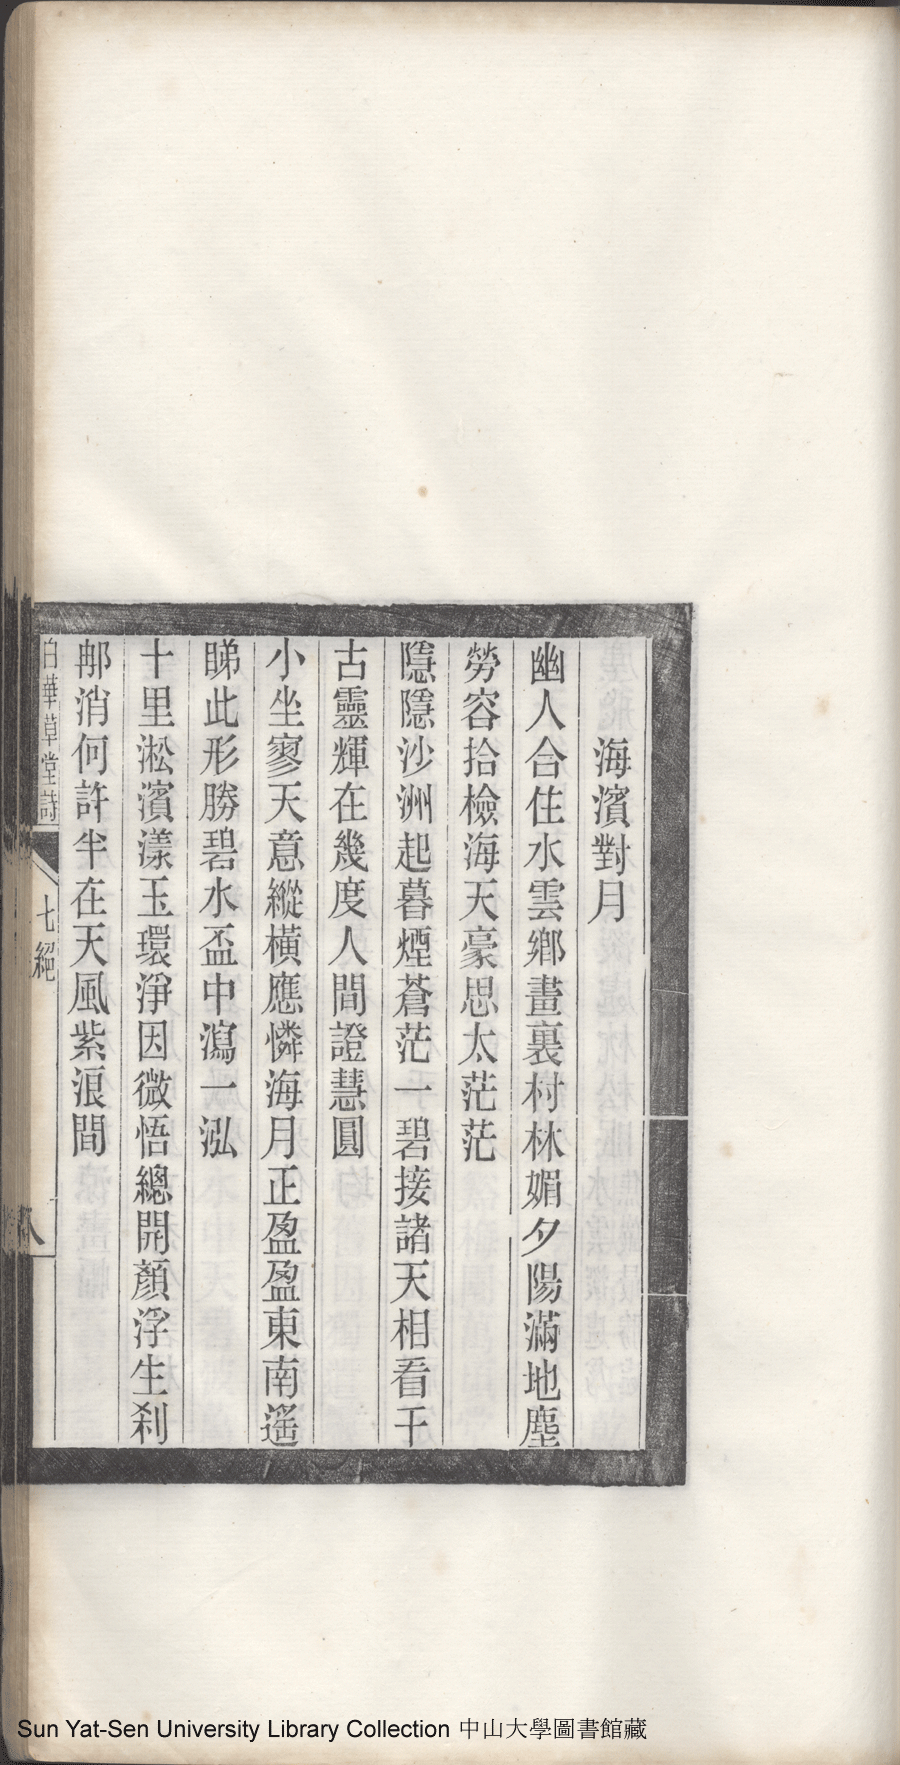 海濱對月
幽人合住水雲鄉畫裏村林媚夕陽滿地塵
勞容拾檢海天豪思太茫茫
隱隱沙洲起暮煙蒼茫一碧接諸天相看千
古靈輝在幾度人間證慧圓
小坐寥天意縱橫應憐海月正盈盈東南遥
睇此形勝碧水盃中瀉一泓
十里淞濱漾玉環淨因微悟總開顏浮生刹
那消何許半在天風紫浪間
白華草堂詩
七絕
八
Sun Yat-Sen University Library Collection 中山大學圖書館藏